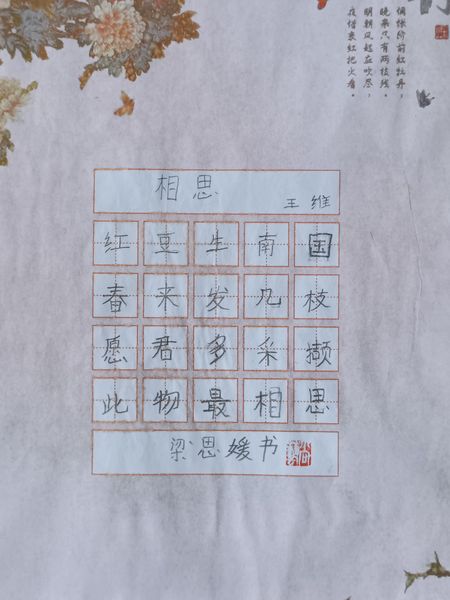 惆怅阶前红牡丹，
晚来只有两枝残。
明朝风起应吹尽，
夜惜衰红把火看。
相思
王维
红豆生南国
春来发几枝
愿君多采撷
此物最相思
梁思媛书